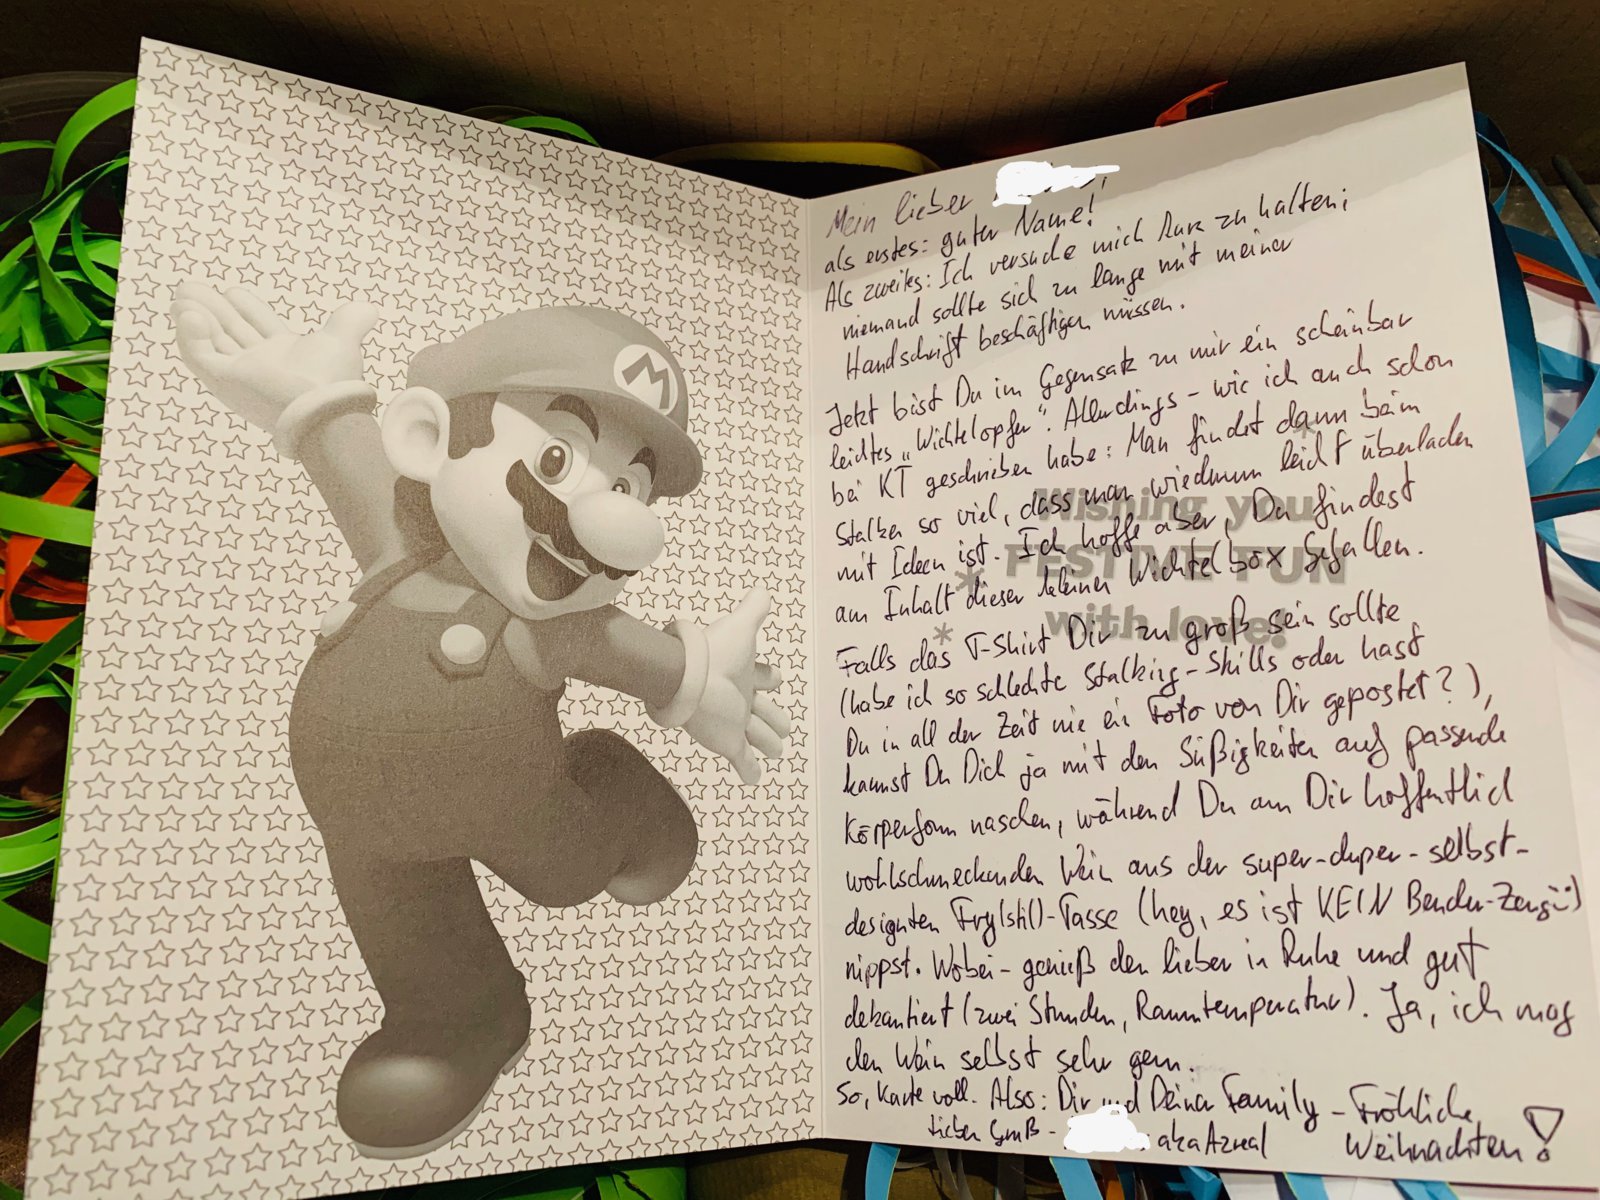 M
Mein lieber
als erstes: guter Name!
Als zweites: Ich versuche mich kurz zu halten;
niemand sollte sich zu lange mit meiner
Handschrift beschäftigen müssen.
Jetzt bist Du im Gegensatz zu mir ein scheinbar
leichtes „Wichtelopfer“. Allerdings – wie ich auch schon
bei KT geschrieben habe: Man findet dann beim
Stalken so viel, dass man wiederum leicht überladen
mit Ideen ist. Ich hoffe aber, Du findest
am Inhalt dieser kleinen Wichtelbox Gefallen.
Wishing you
FESTIVE FUN
with love!
Falls das T-Shirt Dir zu groß sein sollte
(habe ich so schlechte Stalking-Skills oder hast
Du in all der Zeit nie ein Foto von Dir gepostet?),
kannst Du Dich ja mit den Süßigkeiten auf passende
Körperform naschen, während Du an Dir hoffentlich
wohlschmeckenden Wein aus der super-duper-selbst-
designten Fry(sti)-Tasse (hey, es ist KEIN Bender-Zeug :)
nippst. Wobei – genieß den lieber in Ruhe und gut
dekantiert (zwei Stunden, Raumtemperatur). Ja, ich mag
den Wein selbst sehr gern.
So, Karte voll. Also: Dir und Deiner Family – Fröhliche
Weihnachten!
lieben Gruß – aka Azreal